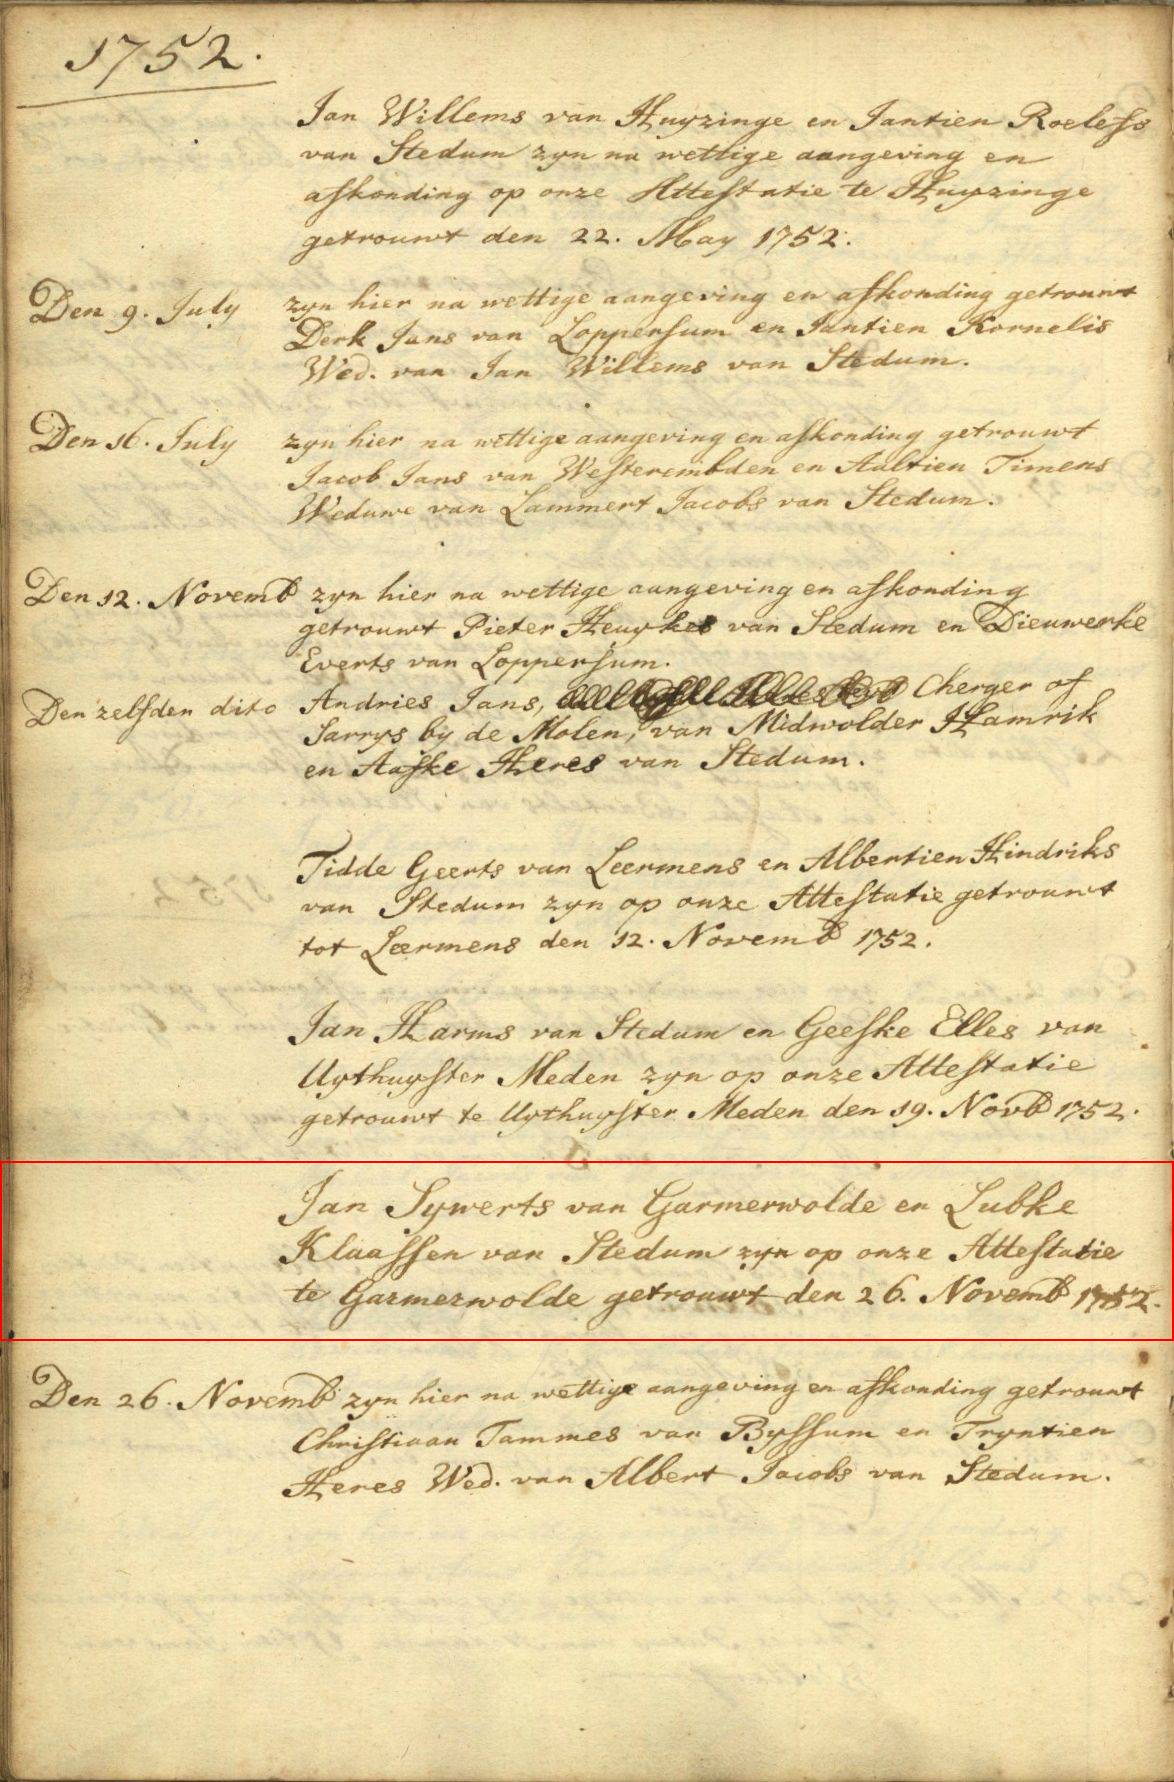 1752.
Jan Willems van Huyzinge en Jantien Roelefs
van Stedum zyn na wettige aangeving en
afkonding op onze Attestatie te Huyzinge
getrouwt den 22. May 1752.
Den 9. July zyn hier na wettige aangeving en afkonding getrouwt
Derk Jans van Loppersum en Jantien Kornelis
Wed. van Jan Willems van Stedum.
Den 16. July zyn hier na wettige aangeving en afkonding getrouwt
Jacob Jans van Westerembden en Aaltien Timens
Weduwe van Lammert Jacobs van Stedum.
Den 12. Novemb zyn hier na wettige aangeving en afkonding
getrouwt Pieter Heuykes van Stedum en Dieuwerke
Everts van Loppersum.
Den zelfden dito Andries Jans, Cherger of
Sarrys by de Molen, van Midwolder Hamrik
en Aafke Heres van Stedum.
Tidde Geerts van Leermens en Albertien Hindriks
van Stedum zyn op onze Attestatie getrouwt
tot Leermens den 12. Novemb 1752.
Jan Harms van Stedum en Geeske Elles van
Uythuyster Meden zyn op onze Attestatie
getrouwt te Uythuyster Meden den 19. Novb 1752.
Jan Sywerts van Garmerwolde en Lubke
Klaassen van Stedum zyn op onze Attestatie
te Garmerwolde getrouwt den 26. Novemb 1752.
Den 26. Novemb zyn hier na wettige aangeving en afkonding getrouwt
Christiaan Tammes van Byssum en Tryntien
Heres Wed. van Albert Jacobs van Stedum.